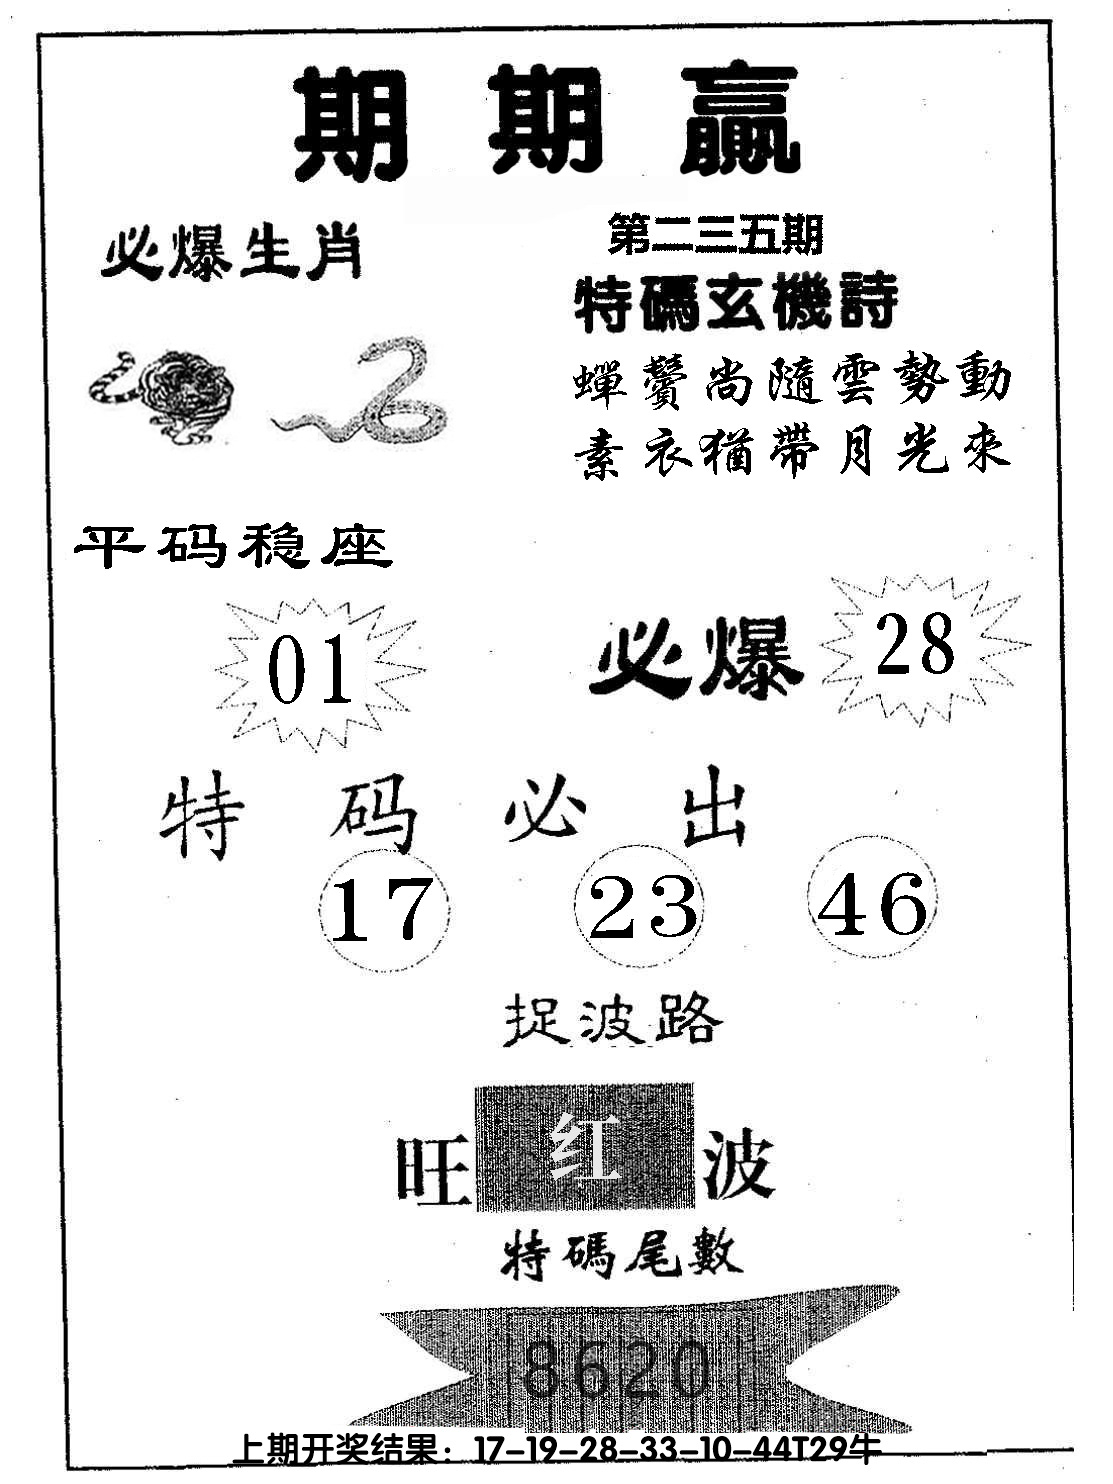 期期贏
必爆生肖
第二三五期
特碼玄機詩
蟬鬢尚隨雲勢動
素衣猶帶月光來
平码稳座
01
必爆 28
特码必出
17 23 46
捉波路
旺红波
特碼尾數
8620
上期开奖结果：17-19-28-33-10-44T29牛